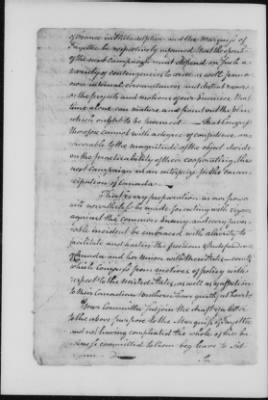 of France in Philadelphia and the Marquis de la
Fayette be respectively informed that the operations
of the next campaign must depend on such a
variety of contingencies to arise as well from our
own internal circumstances and actual resour
as the projects and motions of our enemies that
time alone can mature and point out the plan
which ought to be pursued That Congress
therefore cannot with a degree of confidence an
swerable to the magnitude of the object decide
on the practicability of their cooperating the
next campaign in an enterprize for the eman
cipation of Canada
That every preparation in our power
be made for acting with vigour
against the common enemy and every favou
rable incident be embraced with alacrity to
facilitate and hasten the freedom & independence
of Canada and her union with these states events
which Congress from motives of policy with
respect to the united states, as well as of affection
to their Canadian brethren have greatly at heart
Your Committee subjoin the draft of a letter
to the above purpose to the Marquis de la Fayette
and not having compleated the whole of the bu
siness committed to them beg leave to sit